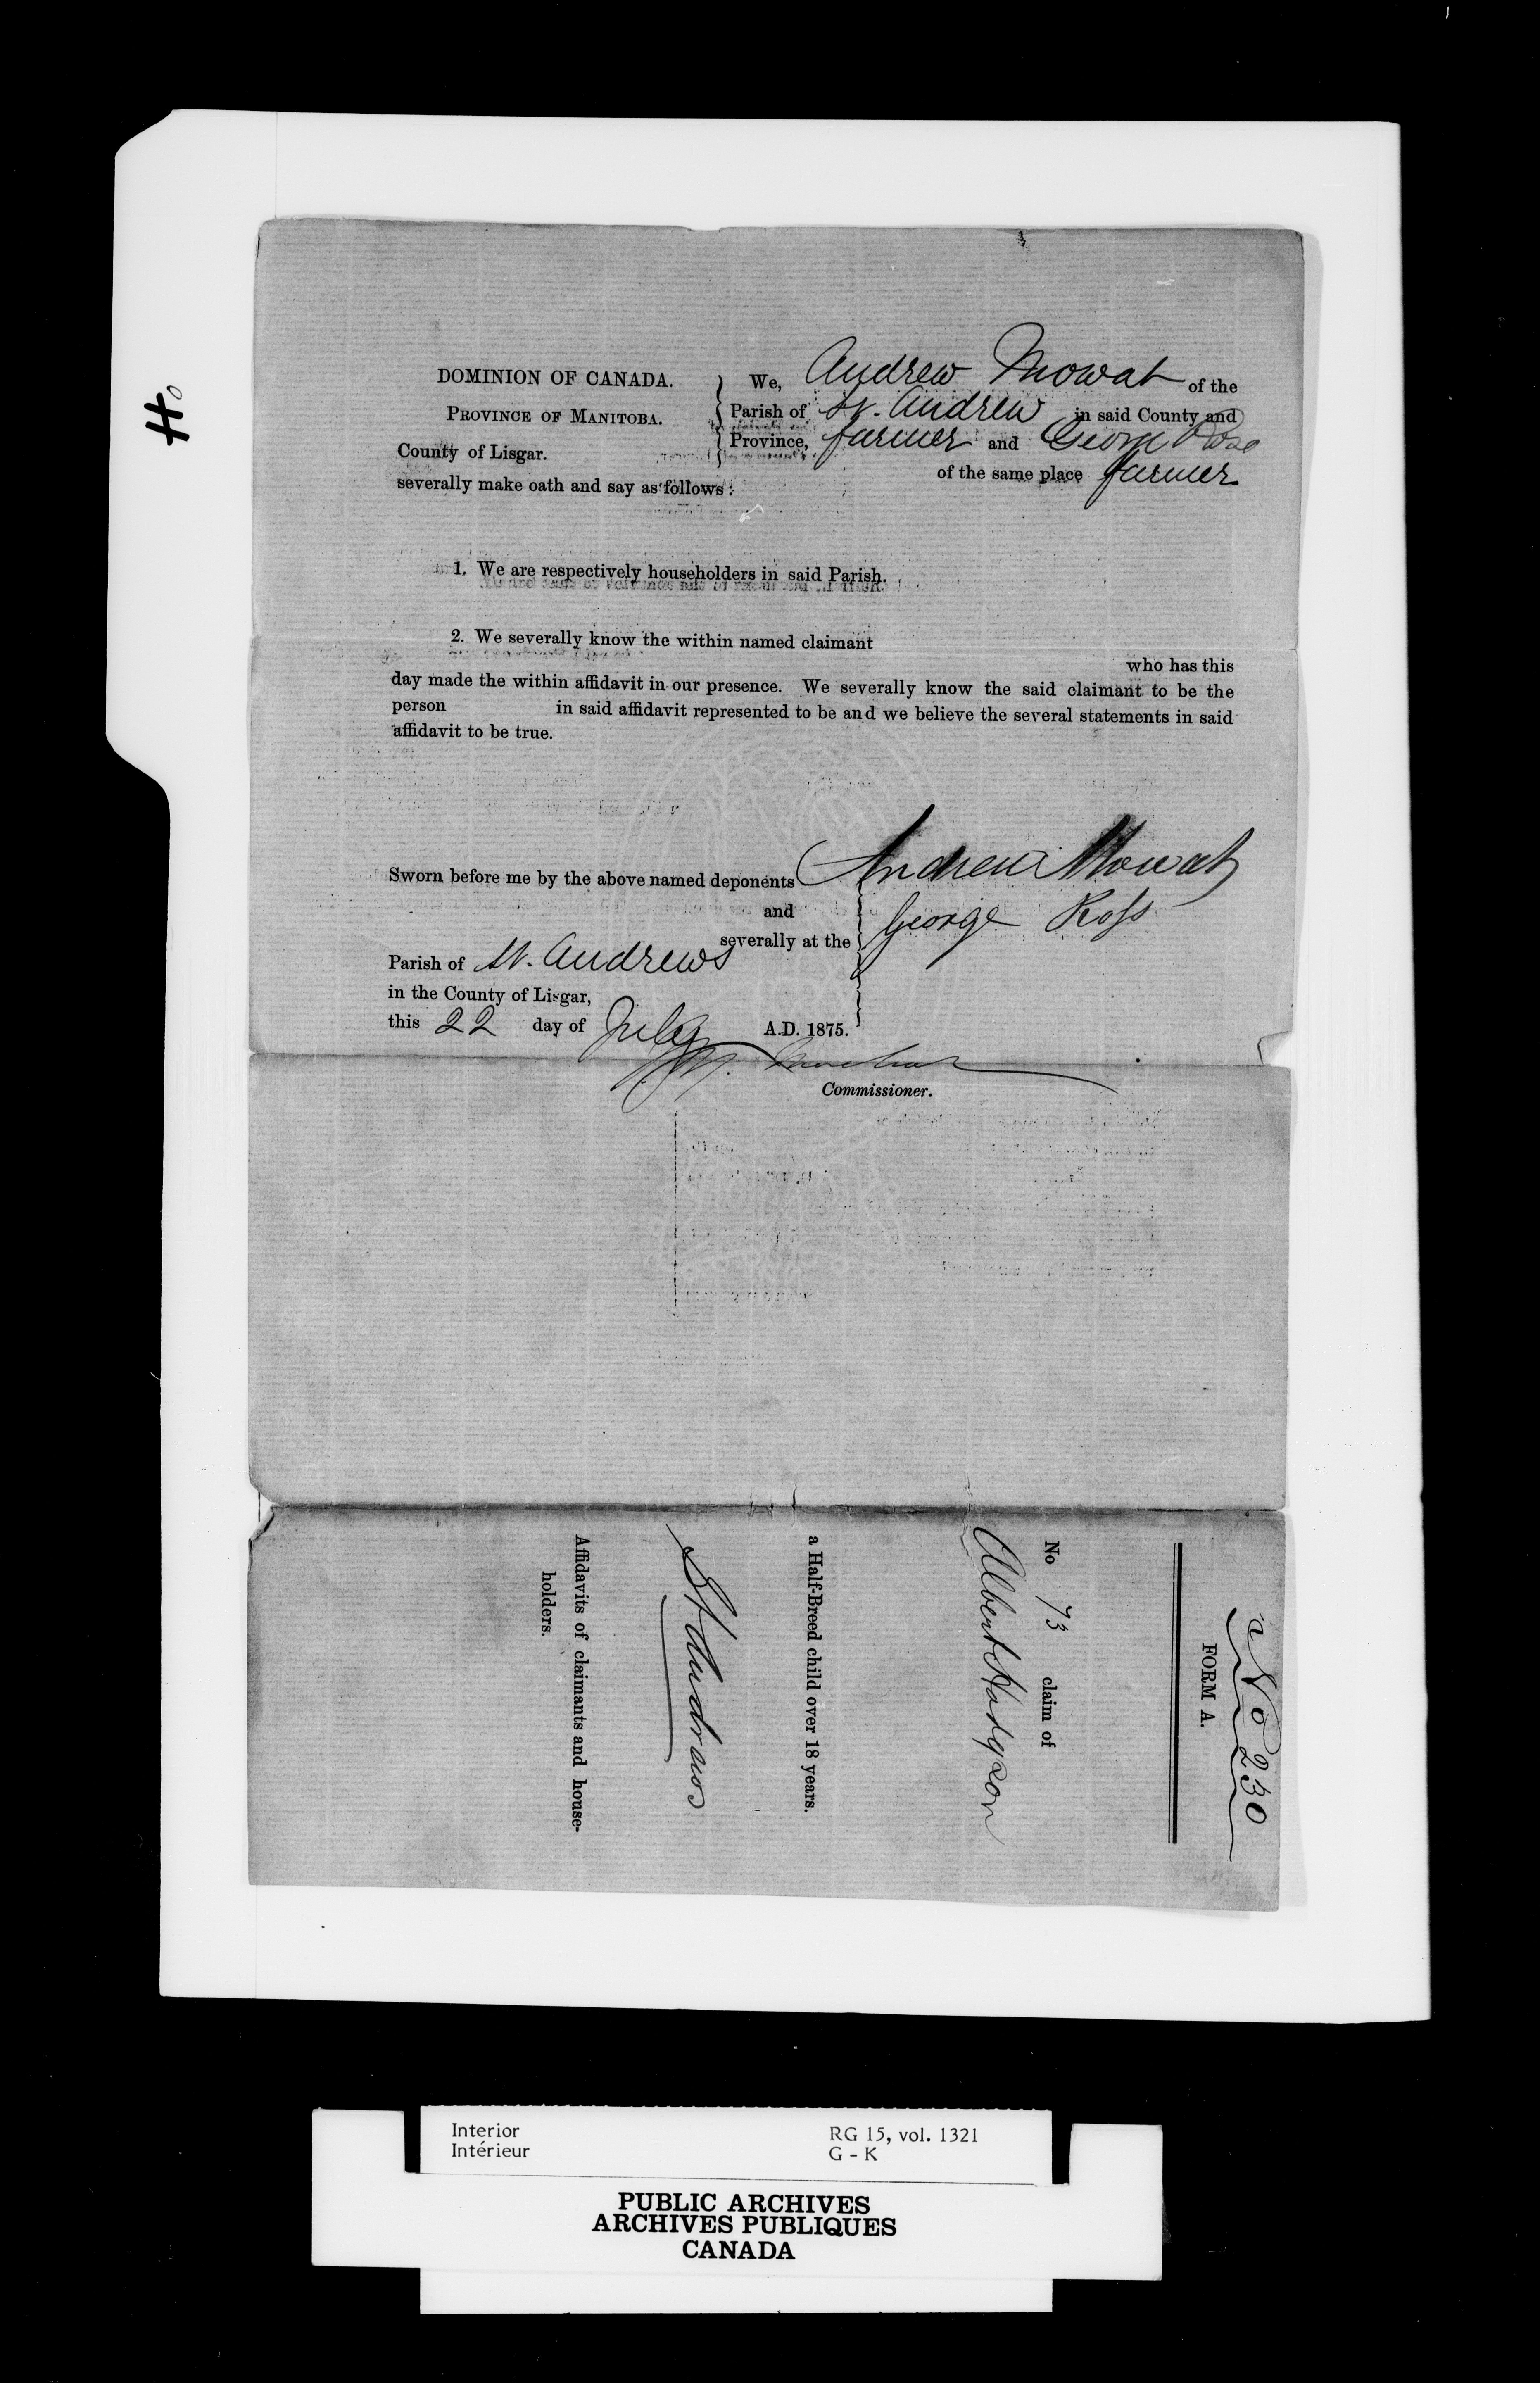 Ho
DOMINION OF CANADA.
PROVINCE OF MANITOBA.
County of Lisgar.
We, Andrew Mowat of the
Parish of St. Andrew in said County and
Province, farmer and George Ross
of the same place farmer
severally make oath and say as follows:
1. We are respectively householders in said Parish.
2. We severally know the within named claimant
who has this
day made the within affidavit in our presence. We severally know the said claimant to be the
person in said affidavit represented to be and we believe the several statements in said
affidavit to be true.
Sworn before me by the above named deponents
and
severally at the
Parish of St. Andrews
in the County of Lisgar,
this 22 day of July A.D. 1875.
Andrew Mowat
George Ross
Commissioner.
No 230
FORM A.
No 73 claim of
Albert Hodgson
a Half-Breed child over 18 years.
St Andrews
Affidavits of claimants and house-
holders.
Interior
Intérieur
RG 15, vol. 1321
G - K
PUBLIC ARCHIVES
ARCHIVES PUBLIQUES
CANADA